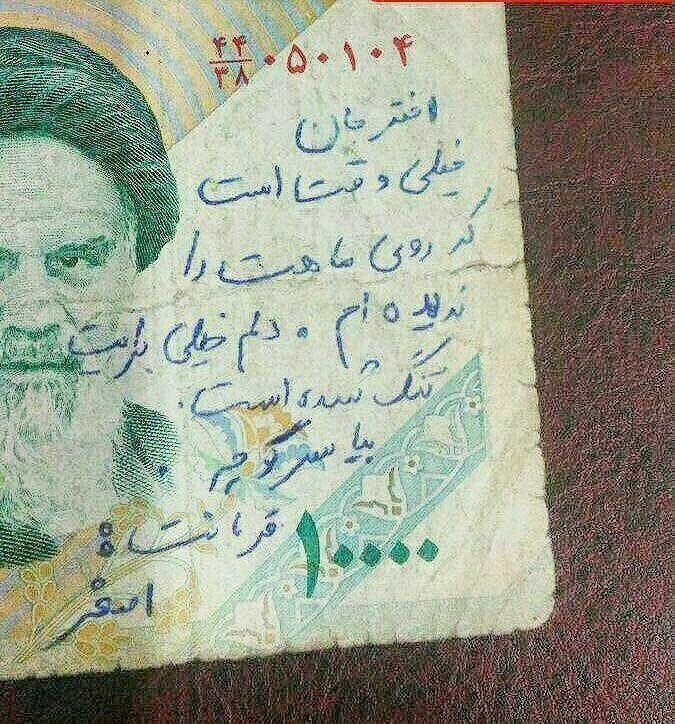 ۴۴
۳۸ ۰۵۰۱۰۴
اختر جان
خیلی وقت است
که روی ماهت را
ندیده ام . دلم خیلی برایت
تنگ شده است .
بیا سر کوچه .
قربانت :
اصغر
۱۰۰۰۰